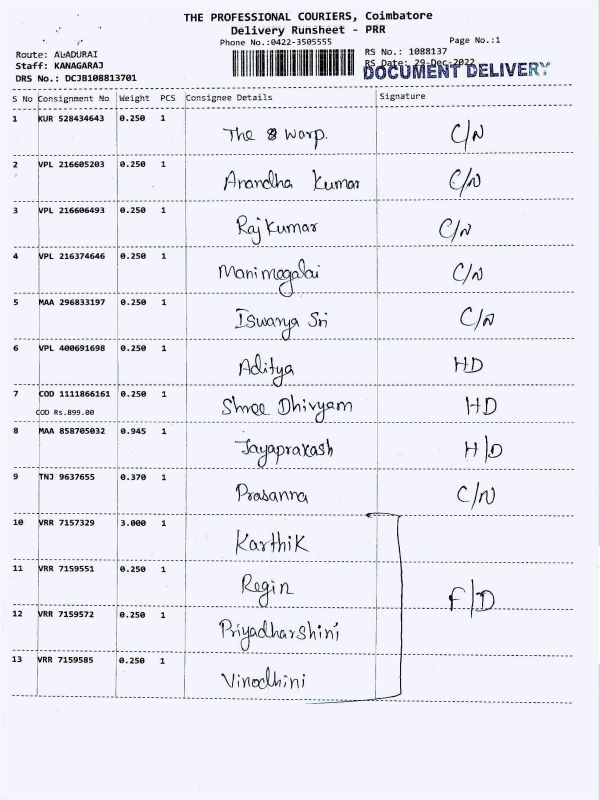 THE PROFESSIONAL COURIERS, Coimbatore
Delivery Runsheet - PRR
Phone No.:0422-3505555
Page No.:1
Route: ALADURAI
RS No.: 1088137
Staff: KANAGARAJ
RS Date: 29-Dec-2022
DRS No.: DCJB108813701
DOCUMENT DELIVERY
S No Consignment No Weight PCS Consignee Details Signature
1 KUR 528434643 0.250 1 The 8 warp. C/N
2 VPL 216605203 0.250 1 Anandha Kumar C/N
3 VPL 216606493 0.250 1 Raj Kumar C/N
4 VPL 216374646 0.250 1 Manimegalai C/N
5 MAA 296833197 0.250 1 Iswarya Sri C/N
6 VPL 400691698 0.250 1 Aditya HD
7 COD 1111866161 0.250 1 Shree Dhivyam HD
COD Rs.899.00
8 MAA 858705032 0.945 1 Jayaprakash H/D
9 TNJ 9637655 0.370 1 Prasanna C/N
10 VRR 7157329 3.000 1 Karthik
11 VRR 7159551 0.250 1 Regin F/D
12 VRR 7159572 0.250 1 Priyadharshini
13 VRR 7159585 0.250 1 Vinodhini